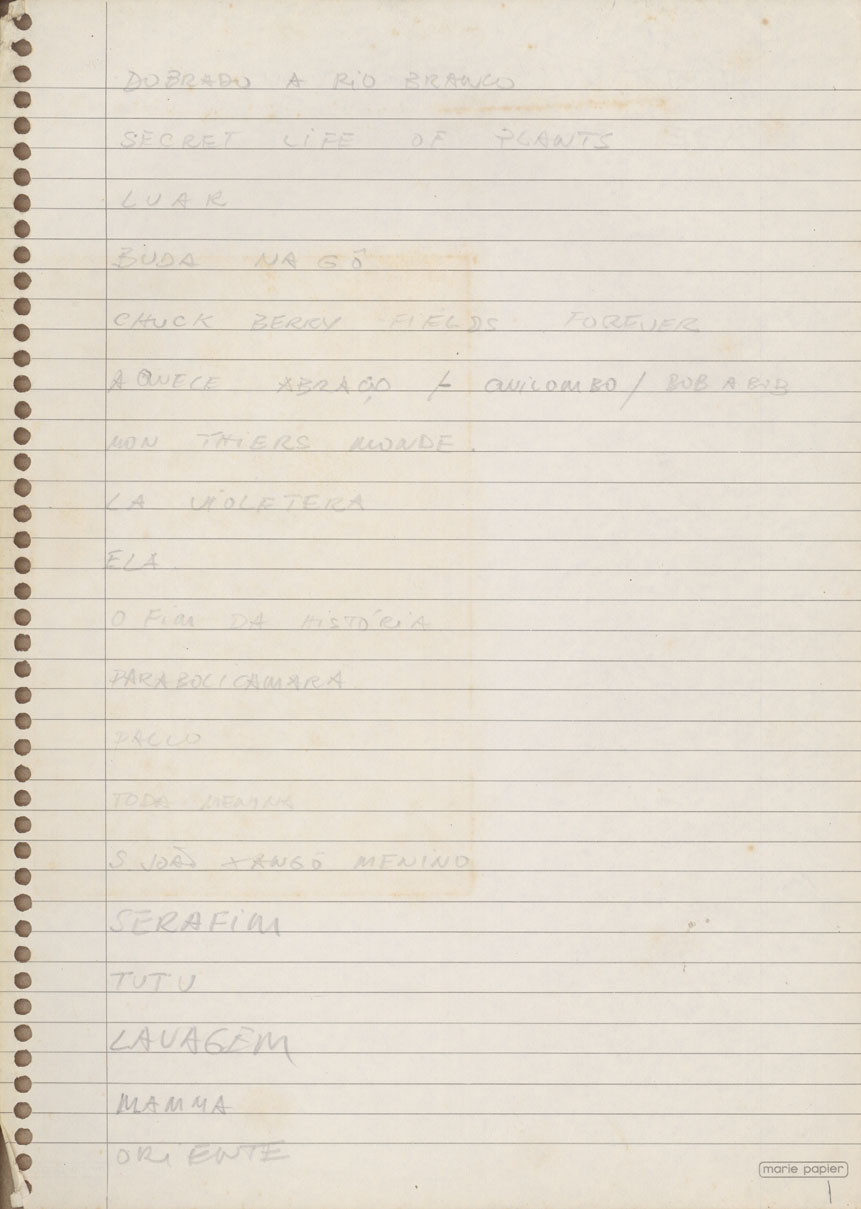 DOBRADO A RIO BRANCO
SECRET LIFE OF PLANTS
LUAR
BUDA NAGÔ
CHUCK BERRY FIELDS FOREVER
AQUECE ABRAÇO / QUILOMBO / BOB A BOB
MON THIERS MONDE.
LA VIOLETERA
ELA
O FIM DA HISTÓRIA
PARABOLICAMARA
PALCO
TODA MENINA
S. JOÃO XANGÔ MENINO
SERAFIM
TUTU
LAVAGEM
MAMMA
ORIENTE
marie papier